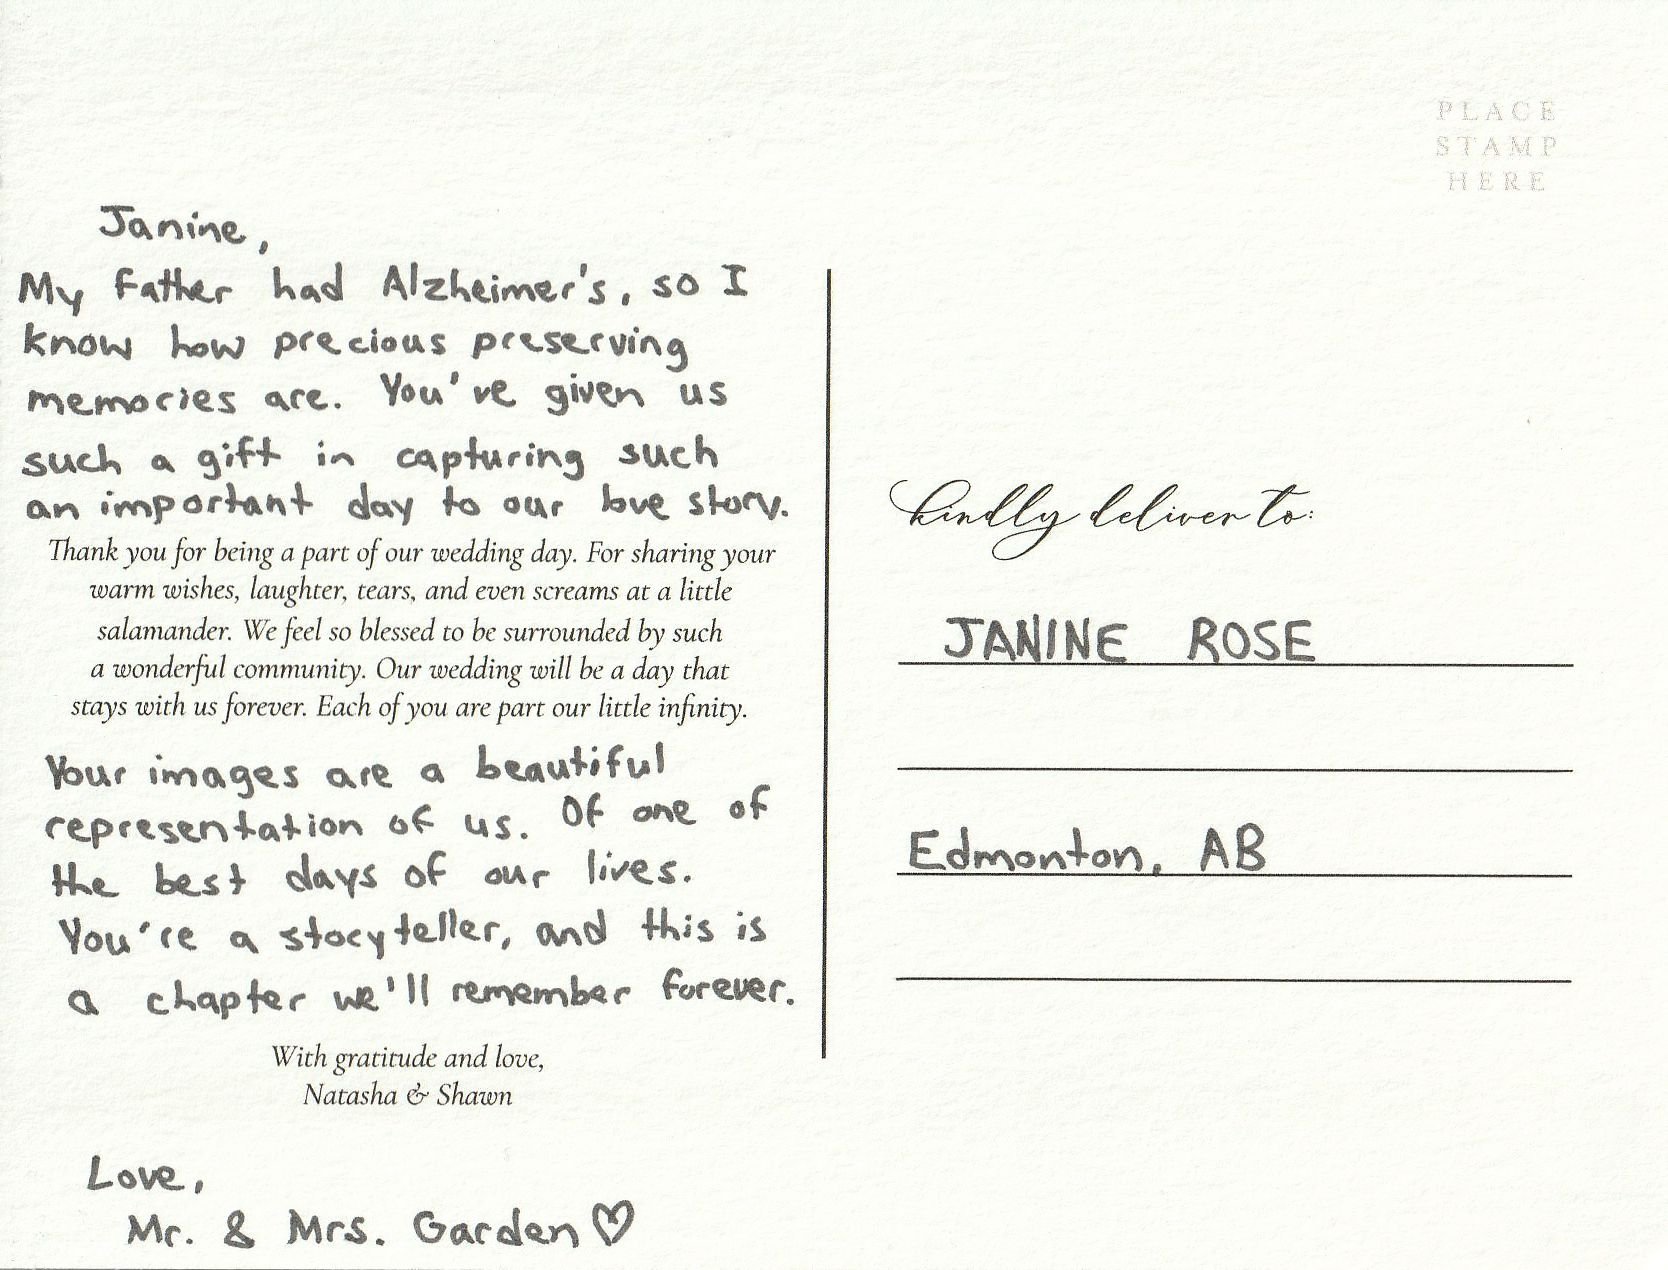 PLACE
STAMP
HERE
Janine,
My Father had Alzheimer's, so I
know how precious preserving
memories are. You've given us
such a gift in capturing such
an important day to our love story.
Thank you for being a part of our wedding day. For sharing your
warm wishes, laughter, tears, and even screams at a little
salamander. We feel so blessed to be surrounded by such
a wonderful community. Our wedding will be a day that
stays with us forever. Each of you are part our little infinity.
Your images are a beautiful
representation of us. Of one of
the best days of our lives.
You're a storyteller, and this is
a chapter we'll remember forever.
With gratitude and love,
Natasha & Shawn
Love,
Mr. & Mrs. Garden♡
kindly deliver to:
JANINE ROSE
Edmonton, AB